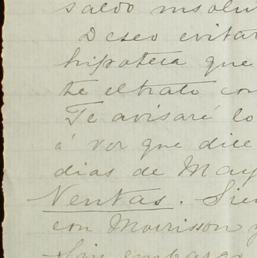 saldo insolu
Deseo evitar
hipoteca que
te el trato con
Te avisaré lo
á ver que dice
dias de May
Ventas. Sie
con Morrisson y
Sin embargo